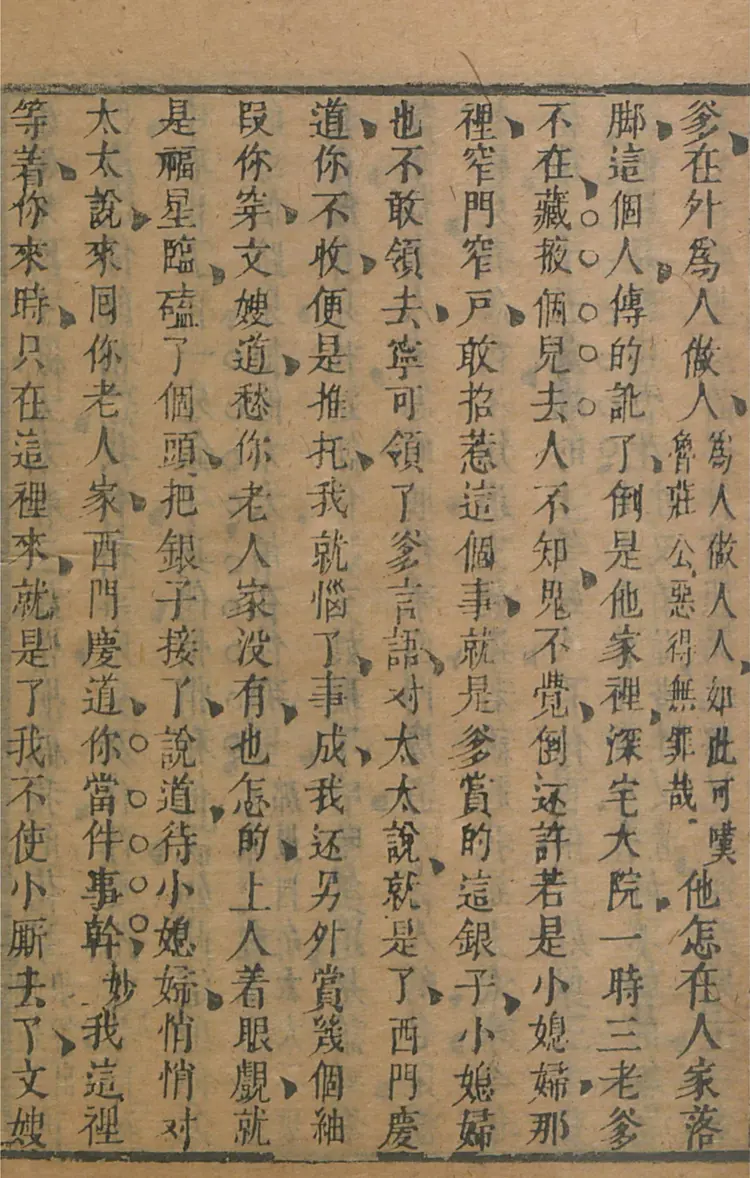 爹、在外爲人做人、爲人做人人如此可嘆魯莊公惡得無罪哉他怎在人家落
脚、這個人、傳的訛了、倒是他家裡、深宅大院、一時三老爹
不在、藏掖個兒去、人不知、鬼不覺、倒还許若是小媳婦、那
裡、窄門窄戶、敢招惹這個事、就是爹賞的這銀子、小媳婦
也不敢領去、寧可領了爹言語、对太太說、就是了、西門慶
道、你不收、便是推托、我就惱了、事成、我还另外賞幾個紬
段你穿、文嫂道、愁你老人家没有、也怎的、上人着眼覷、就
是福星臨、磕了個頭、把銀子接了、說道、待小媳婦、悄悄对
太太說、來回你老人家、西門慶道、你當件事幹、妙我這裡
等着、你來時、只在這裡來、就是了我不使小厮去了、文嫂